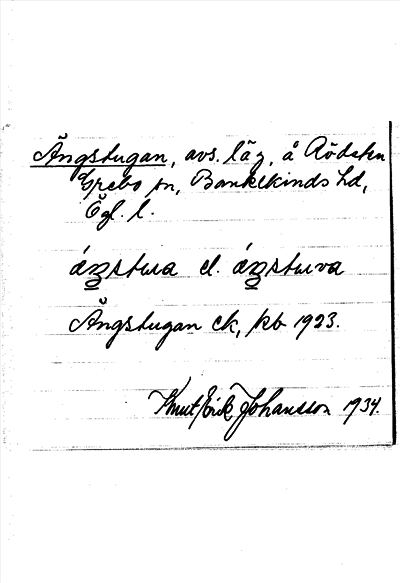 Ängstugan, avs. läg. å Rödsten
Grebo sn, Bankekinds hd,
Ögl. l.
áŋstua el. áŋstuva
Ängstugan ek, kb 1923.
Knut Erik Johansson 1934.